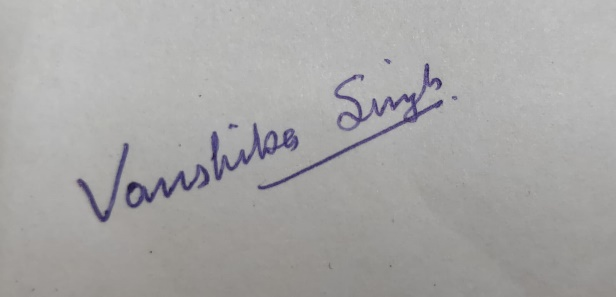 Vanshika Singh.